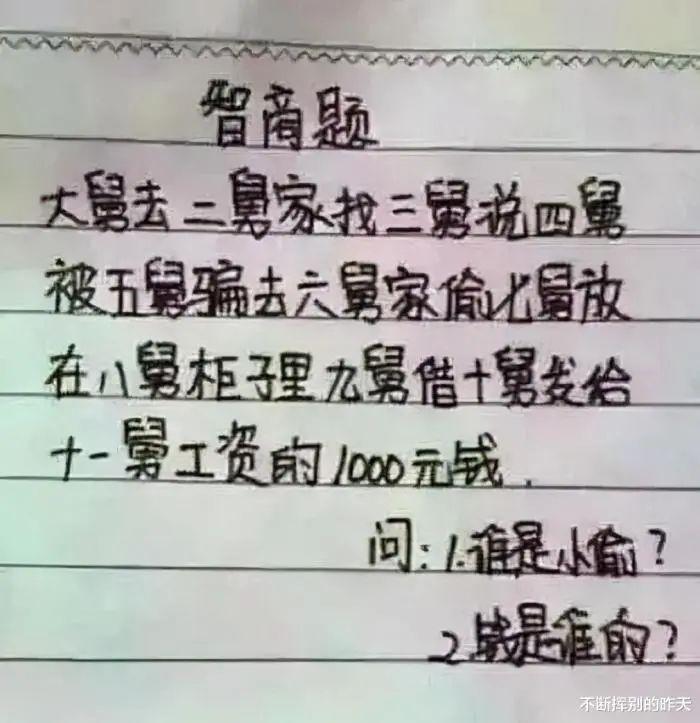 智商题
大舅去二舅家找三舅说四舅
被五舅骗去六舅家偷七舅放
在八舅柜子里九舅借十舅发给
十一舅工资的1000元钱.
问:1.谁是小偷?
2.钱是谁的?
不断挥别的昨天